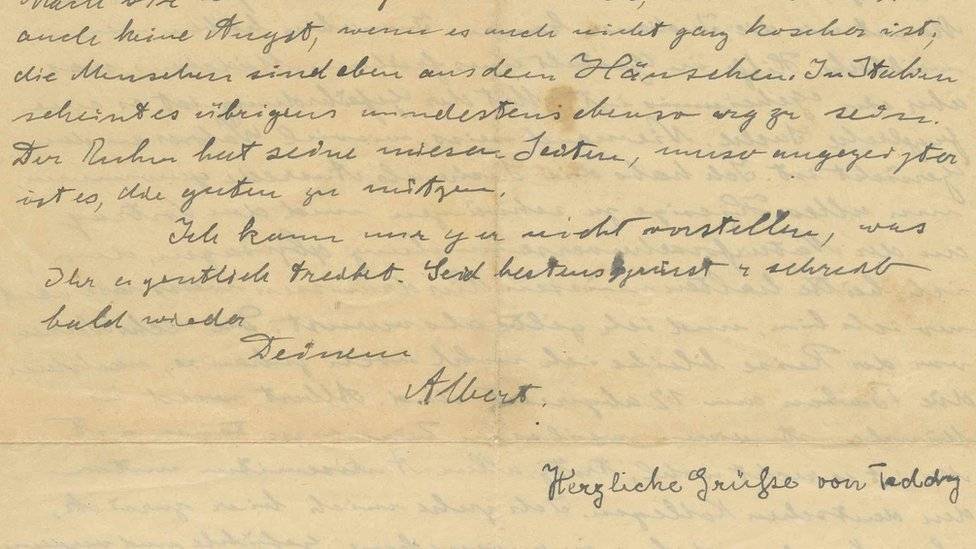 auch keine Angst, wenn es auch nicht ganz koscher ist,
die Menschen sind eben aus dem Häuschen. In Italien
scheint es übrigens mindestens ebenso arg zu sein.
Der Ruhm hat seine miesen Seiten, umso angezeigter
ist es, die guten zu nützen.
Ich kann mir gar nicht vorstellen, was
Ihr eigentlich treibet. Seid bestens grüsst schreibt
bald wieder
Deinem
Albert.
Herzliche Grüße von Teddy